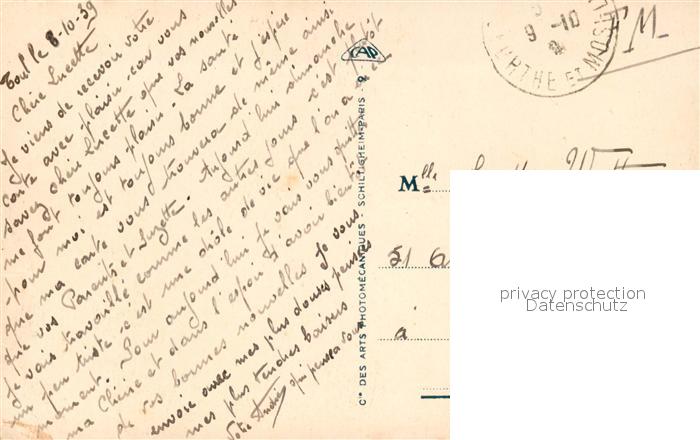 Toul le 8-10-39
Chère Lucette
Je viens de recevoir votre
carte avec plaisir car vous
savez chère Lucette que vos nouvelles
me font toujours plaisir. La santé
pour moi est toujours bonne et j'espère
que ma carte vous trouvera de même ainsi
que vos Parents et Suzette. Aujourd'hui dimanche
Je vais travaillé comme les autres jours c'est plutôt
un peu triste c'est une drôle de vie que l'on a en ce
moment. Pour aujourd'hui je vais vous quitter
ma Chérie et dans l'espoir d'avoir bientôt
de vos bonnes nouvelles Je vous
envoie avec mes plus douces pensées
mes plus tendres baisers
Votre André qui pense a vous
CAP
Cie DES ARTS PHOTOMÉCANIQUES - SCHILTIGHEIM-PARIS - 9
9 -10
MEURTHE ET MOSELLE
M
Mlle
51
à
privacy protection
Datenschutz